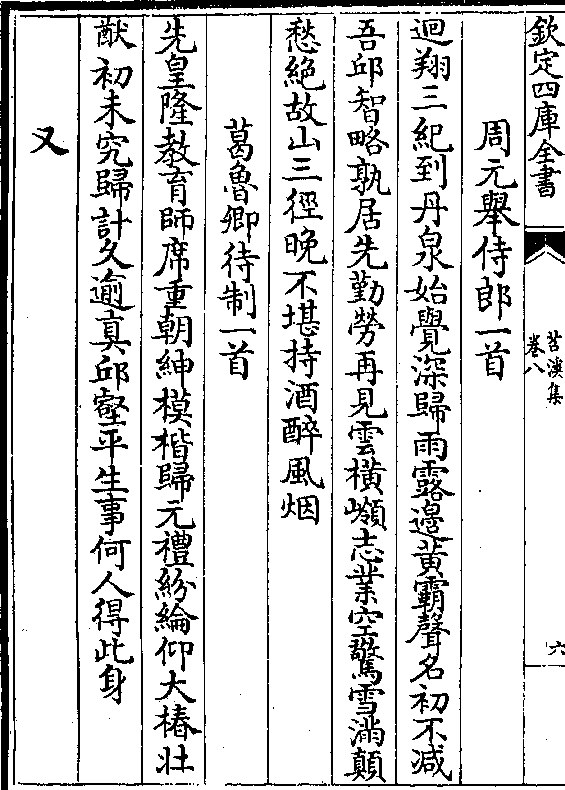 欽定四庫全書
苕溪集
卷八
六
周元舉侍郎一首
迴翔三紀到丹泉始覺深歸雨露邊黃霸聲名初不減
吾邱智略孰居先勤勞再見雲橫嶺志業空驚雪滿顛
愁絕故山三徑晚不堪持酒醉風烟
葛魯卿待制一首
先皇隆教育師席重朝紳模楷歸元禮紛綸仰大椿壯
猷初未究歸計久逾真邱壑平生事何人得此身
又